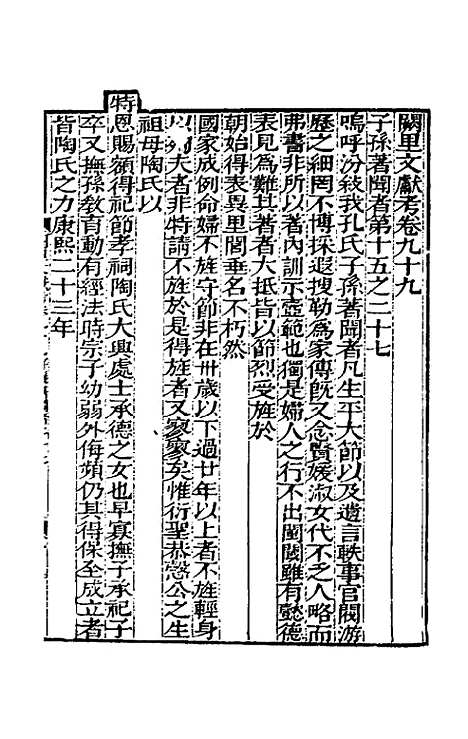 闕里文獻考卷九十九
子孫著聞者第十五之二十七
嗚呼汾敍我孔氏子孫著聞者凡生平大節以及遺言軼事官閥游
歷之細罔不博採遐搜勒為家傳旣又念賢媛淑女代不乏人略而
弗書非所以著內訓示壼範也獨是婦人之行不出閨閫雖有懿德
表見為難其著者大抵皆以節烈受旌於
朝始得表異里閭垂名不朽然
國家成例命婦不旌守節非在卅歲以下過廿年以上者不旌輕身
以殉夫者非特請不旌於是得旌者又寥寥矣惟衍聖恭愨公之生
祖母陶氏以
特恩賜額得祀節孝祠陶氏大興處士承德之女也早寡撫子承祀子
卒又撫孫敎育動有經法時宗子幼弱外侮頻仍其得保全成立者
皆陶氏之力康熙二十三年